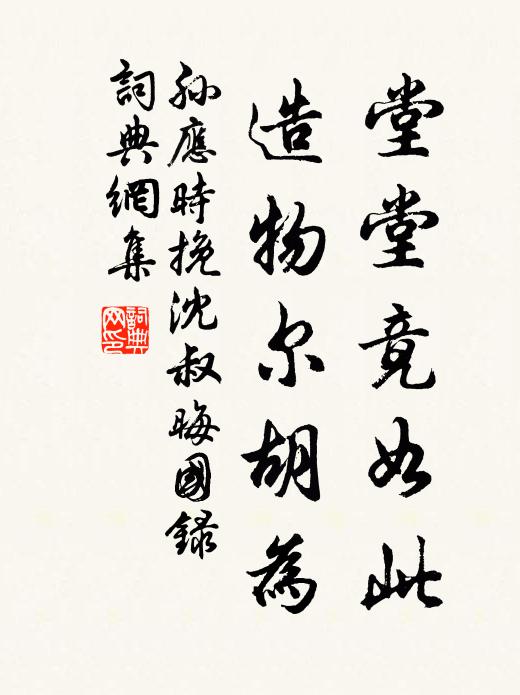 堂堂竟如此
造物尔胡為
孫應時挽沈叔晦國錄
詞典網集
詞典网印